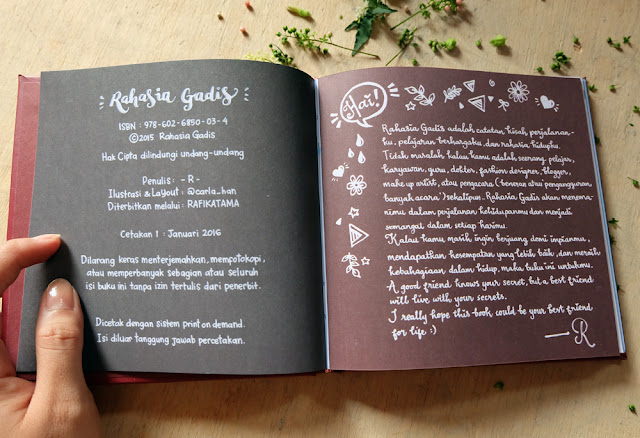 Rahasia Gadis
ISBN : 978-602-6850-03-4
©2015 Rahasia Gadis
Hak Cipta dilindungi undang-undang
Penulis : - R -
Ilustrasi & Layout : @carla_han
Diterbitkan melalui : RAFIKATAMA
Cetakan 1 : Januari 2016
Dilarang keras menterjemahkan, memfotokopi,
atau memperbanyak sebagian atau seluruh
isi buku ini tanpa izin tertulis dari penerbit.
Dicetak dengan sistem print on demand.
Isi diluar tanggung jawab percetakan.
Hai!
Rahasia Gadis adalah catatan, kisah, perjalanan-
ku, pelajaran berhargaku, dan rahasia hidupku.
Tidak masalah kalau kamu adalah seorang pelajar,
karyawan, guru, dokter, fashion designer, blogger,
make up artist, atau pengacara (beneras atau pengangguran
banyak acara) sekalipun. Rahasia Gadis akan menema-
nimu dalam perjalanan kehidupanmu dan menjadi
semangat dalam setiap harimu.
Kalau kamu masih ingin berjuang demi impianmu,
mendapatkan kesempatan yang lebih baik, dan meraih
kebahagiaan dalam hidup, maka buku ini untukmu.
A good friend knows your secret, but a best friend
will live with your secrets.
I really hope this book could be your best friend
for life :)
— R